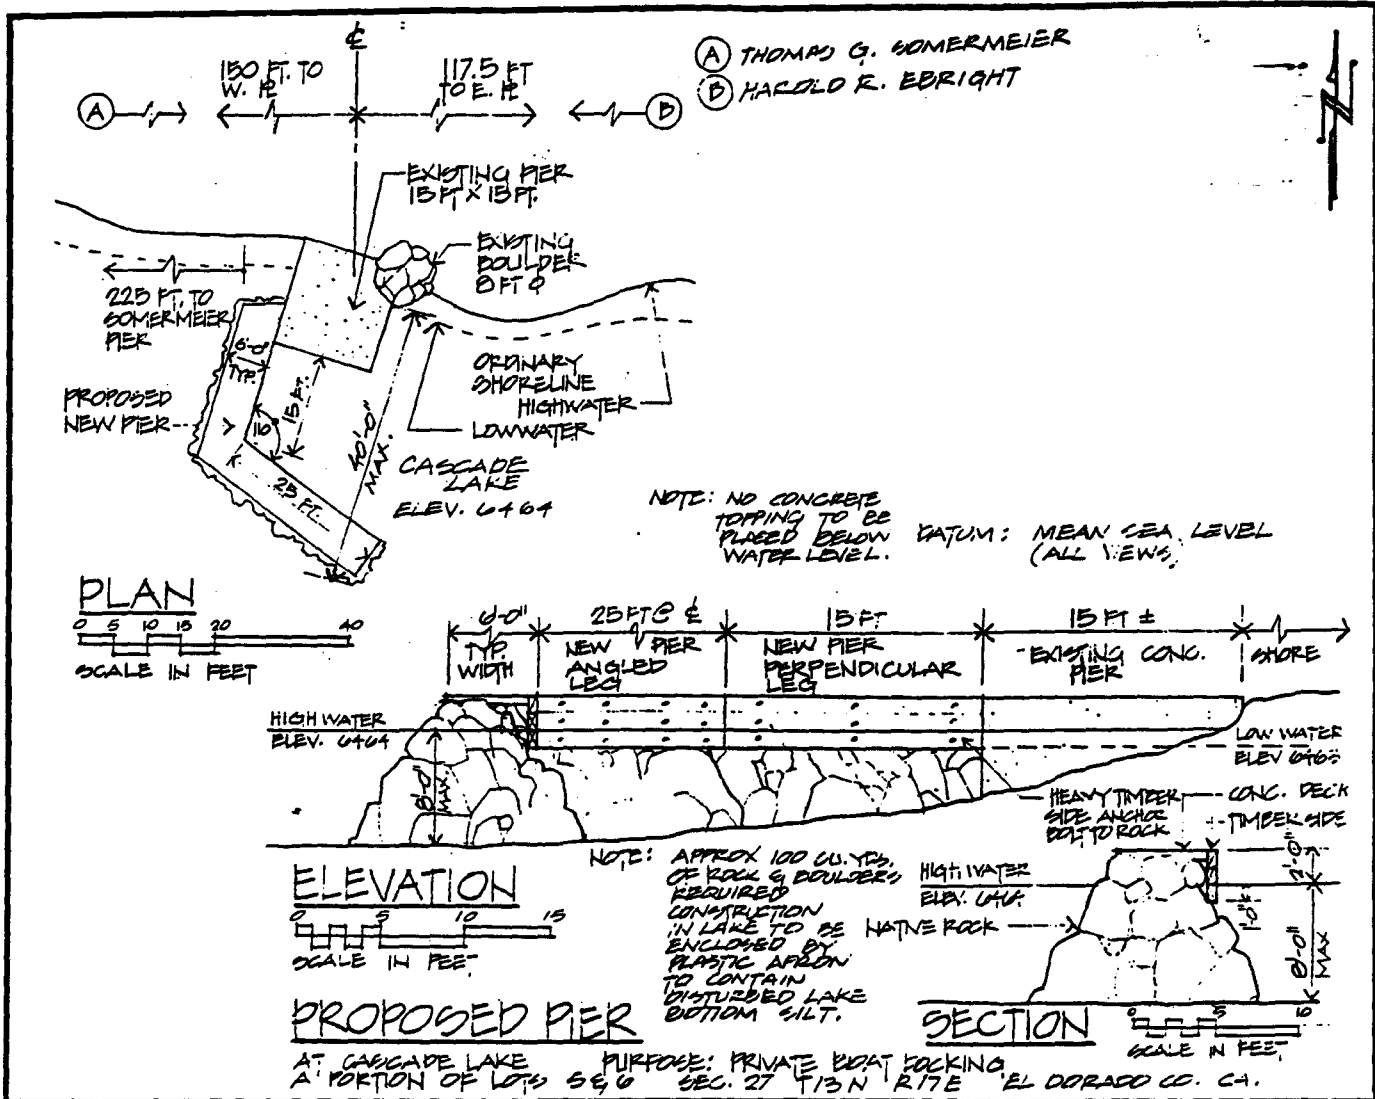 Ⓐ THOMAS G. SOMERMEIER
Ⓑ HAROLD R. EBRIGHT
℄
150 FT. TO
W. ⅊
117.5 FT
TO E. ⅊
A
B
EXISTING PIER
15 FT X 15 FT.
EXISTING
BOULDER
8 FT
225 FT. TO
SOMERMEIER
PIER
6'-0"
TYP.
PROPOSED
NEW PIER
116°
15 FT.
25 FT.
40'-0"
MAX.
ORDINARY
SHORELINE
HIGHWATER
LOWWATER
CASCADE
LAKE
ELEV. 6464
NOTE: NO CONCRETE
TOPPING TO BE
PLACED BELOW
WATER LEVEL.
DATUM: MEAN SEA LEVEL
(ALL VIEWS)
PLAN
0 5 10 15 20 40
SCALE IN FEET
6'-0"
TYP.
WIDTH
25 FT @ ℄
NEW PIER
ANGLED
LEG
15 FT
NEW PIER
PERPENDICULAR
LEG
15 FT ±
EXISTING CONC.
PIER
SHORE
HIGH WATER
ELEV. 6464
8'-0"
MAX
LOW WATER
ELEV
HEAVY TIMBER
SIDE ANCHOR
BOLT TO ROCK
CONC. DECK
TIMBER SIDE
ELEVATION
0 5 10 15
SCALE IN FEET
NOTE: APPROX 100 CU. YDS.
OF ROCK & BOULDERS
REQUIRED
CONSTRUCTION
IN LAKE TO BE
ENCLOSED BY
PLASTIC APRON
TO CONTAIN
DISTURBED LAKE
BOTTOM SILT.
HIGH WATER
ELEV.
NATIVE ROCK
2'-0"
1'-0"
8'-0"
MAX
SECTION
0 5 10
SCALE IN FEET
PROPOSED PIER
AT CASCADE LAKE PURPOSE: PRIVATE BOAT DOCKING
A PORTION OF LOTS 5 & 6 SEC. 27 T13N R17E EL DORADO CO. CA.